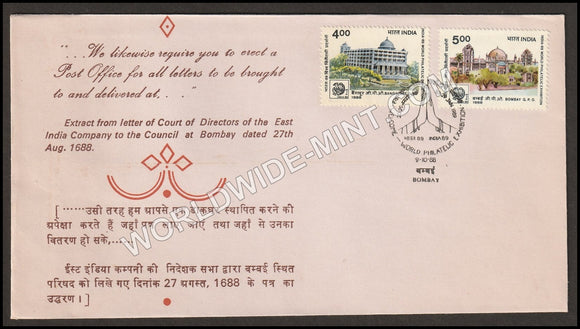 "...We likewise require you to erect a
Post Office for all letters to be brought
to and delivered at,..."
Extract from letter of Court of Directors of the East
India Company to the Council at Bombay dated 27th
Aug. 1688.
[......उसी तरह हम आपसे एक डाकघर स्थापित करने की
अपेक्षा करते हैं जहां पत्र लाए जाएं तथा जहां से उनका
वितरण हो सके,....
ईस्ट इंडिया कम्पनी की निदेशक सभा द्वारा बम्बई स्थित
परिषद को लिखे गए दिनांक 27 अगस्त, 1688 के पत्र का
उद्धरण।]
4.00 भारत INDIA
1988
5.00 भारत INDIA
बम्बई जी.पी.ओ. BOMBAY G.P.O.
1988
INDIA 89
WORLD PHILATELIC EXHIBITION
9-10-88
बम्बई
BOMBAY
WORLDWIDE-MINT.COM